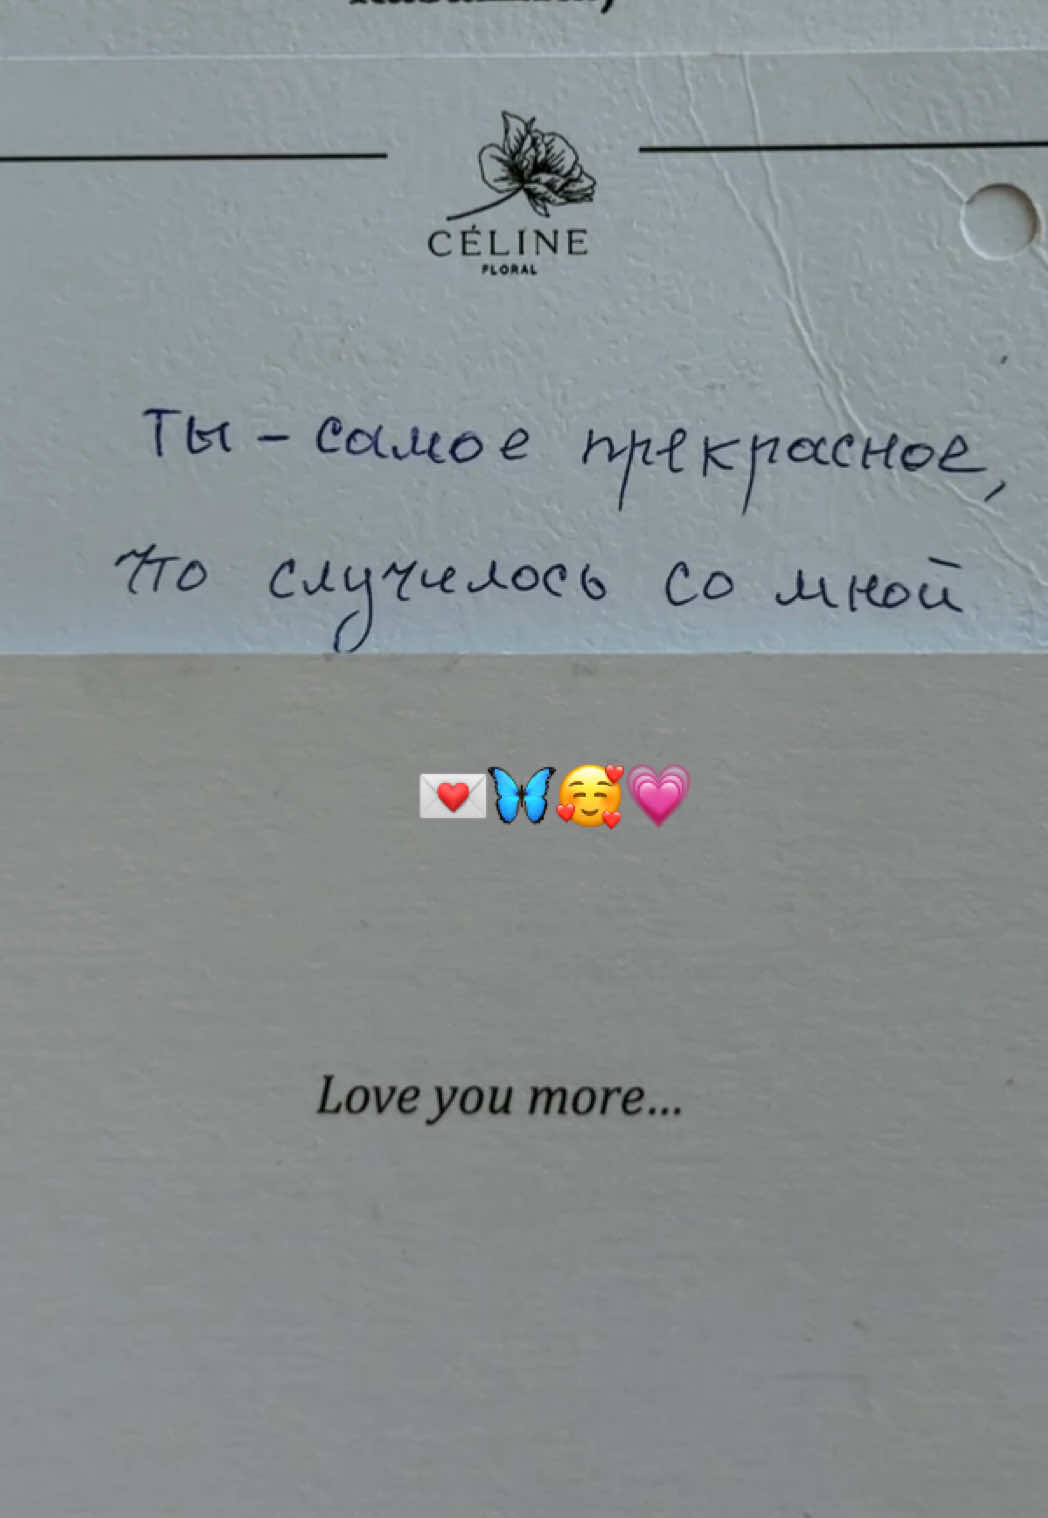 CÉLINE
FLORAL
Ты - самое прекрасное,
что случилось со мной
💌🦋🥰💗
Love you more...